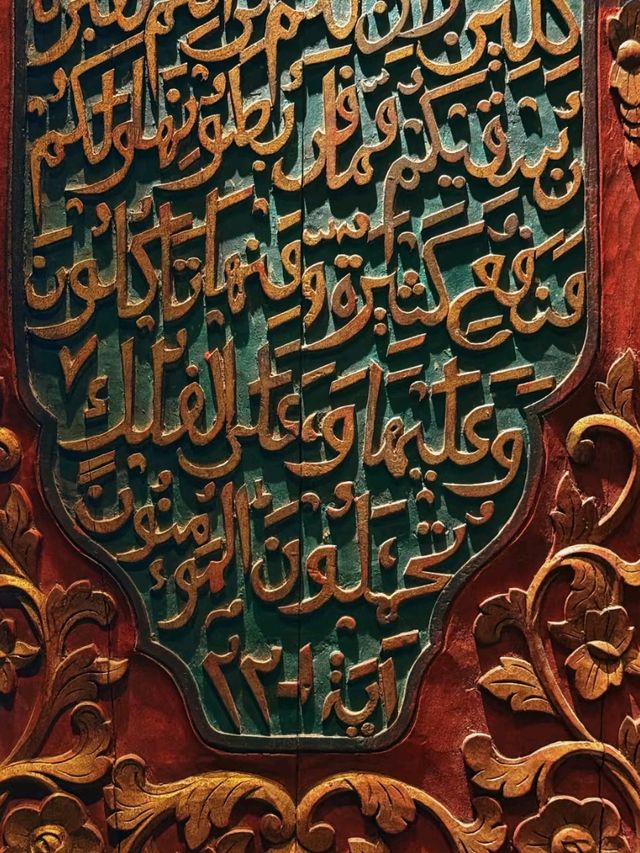 كِلِينَ وَإِنَّ لَكُمْ فِي
نُسْقِيكُمْ مِمَّا فِي بُطُونِهَا وَلَكُمْ
مَنَفِعُ كَثِيرَةٌ وَمِنْهَا تَأْكُلُونَ
وَعَلَيْهَا وَعَلَى الْفُلْكِ
تُحْمَلُونَ الْمُؤْمِنُونَ
آيَة ١-٢٢